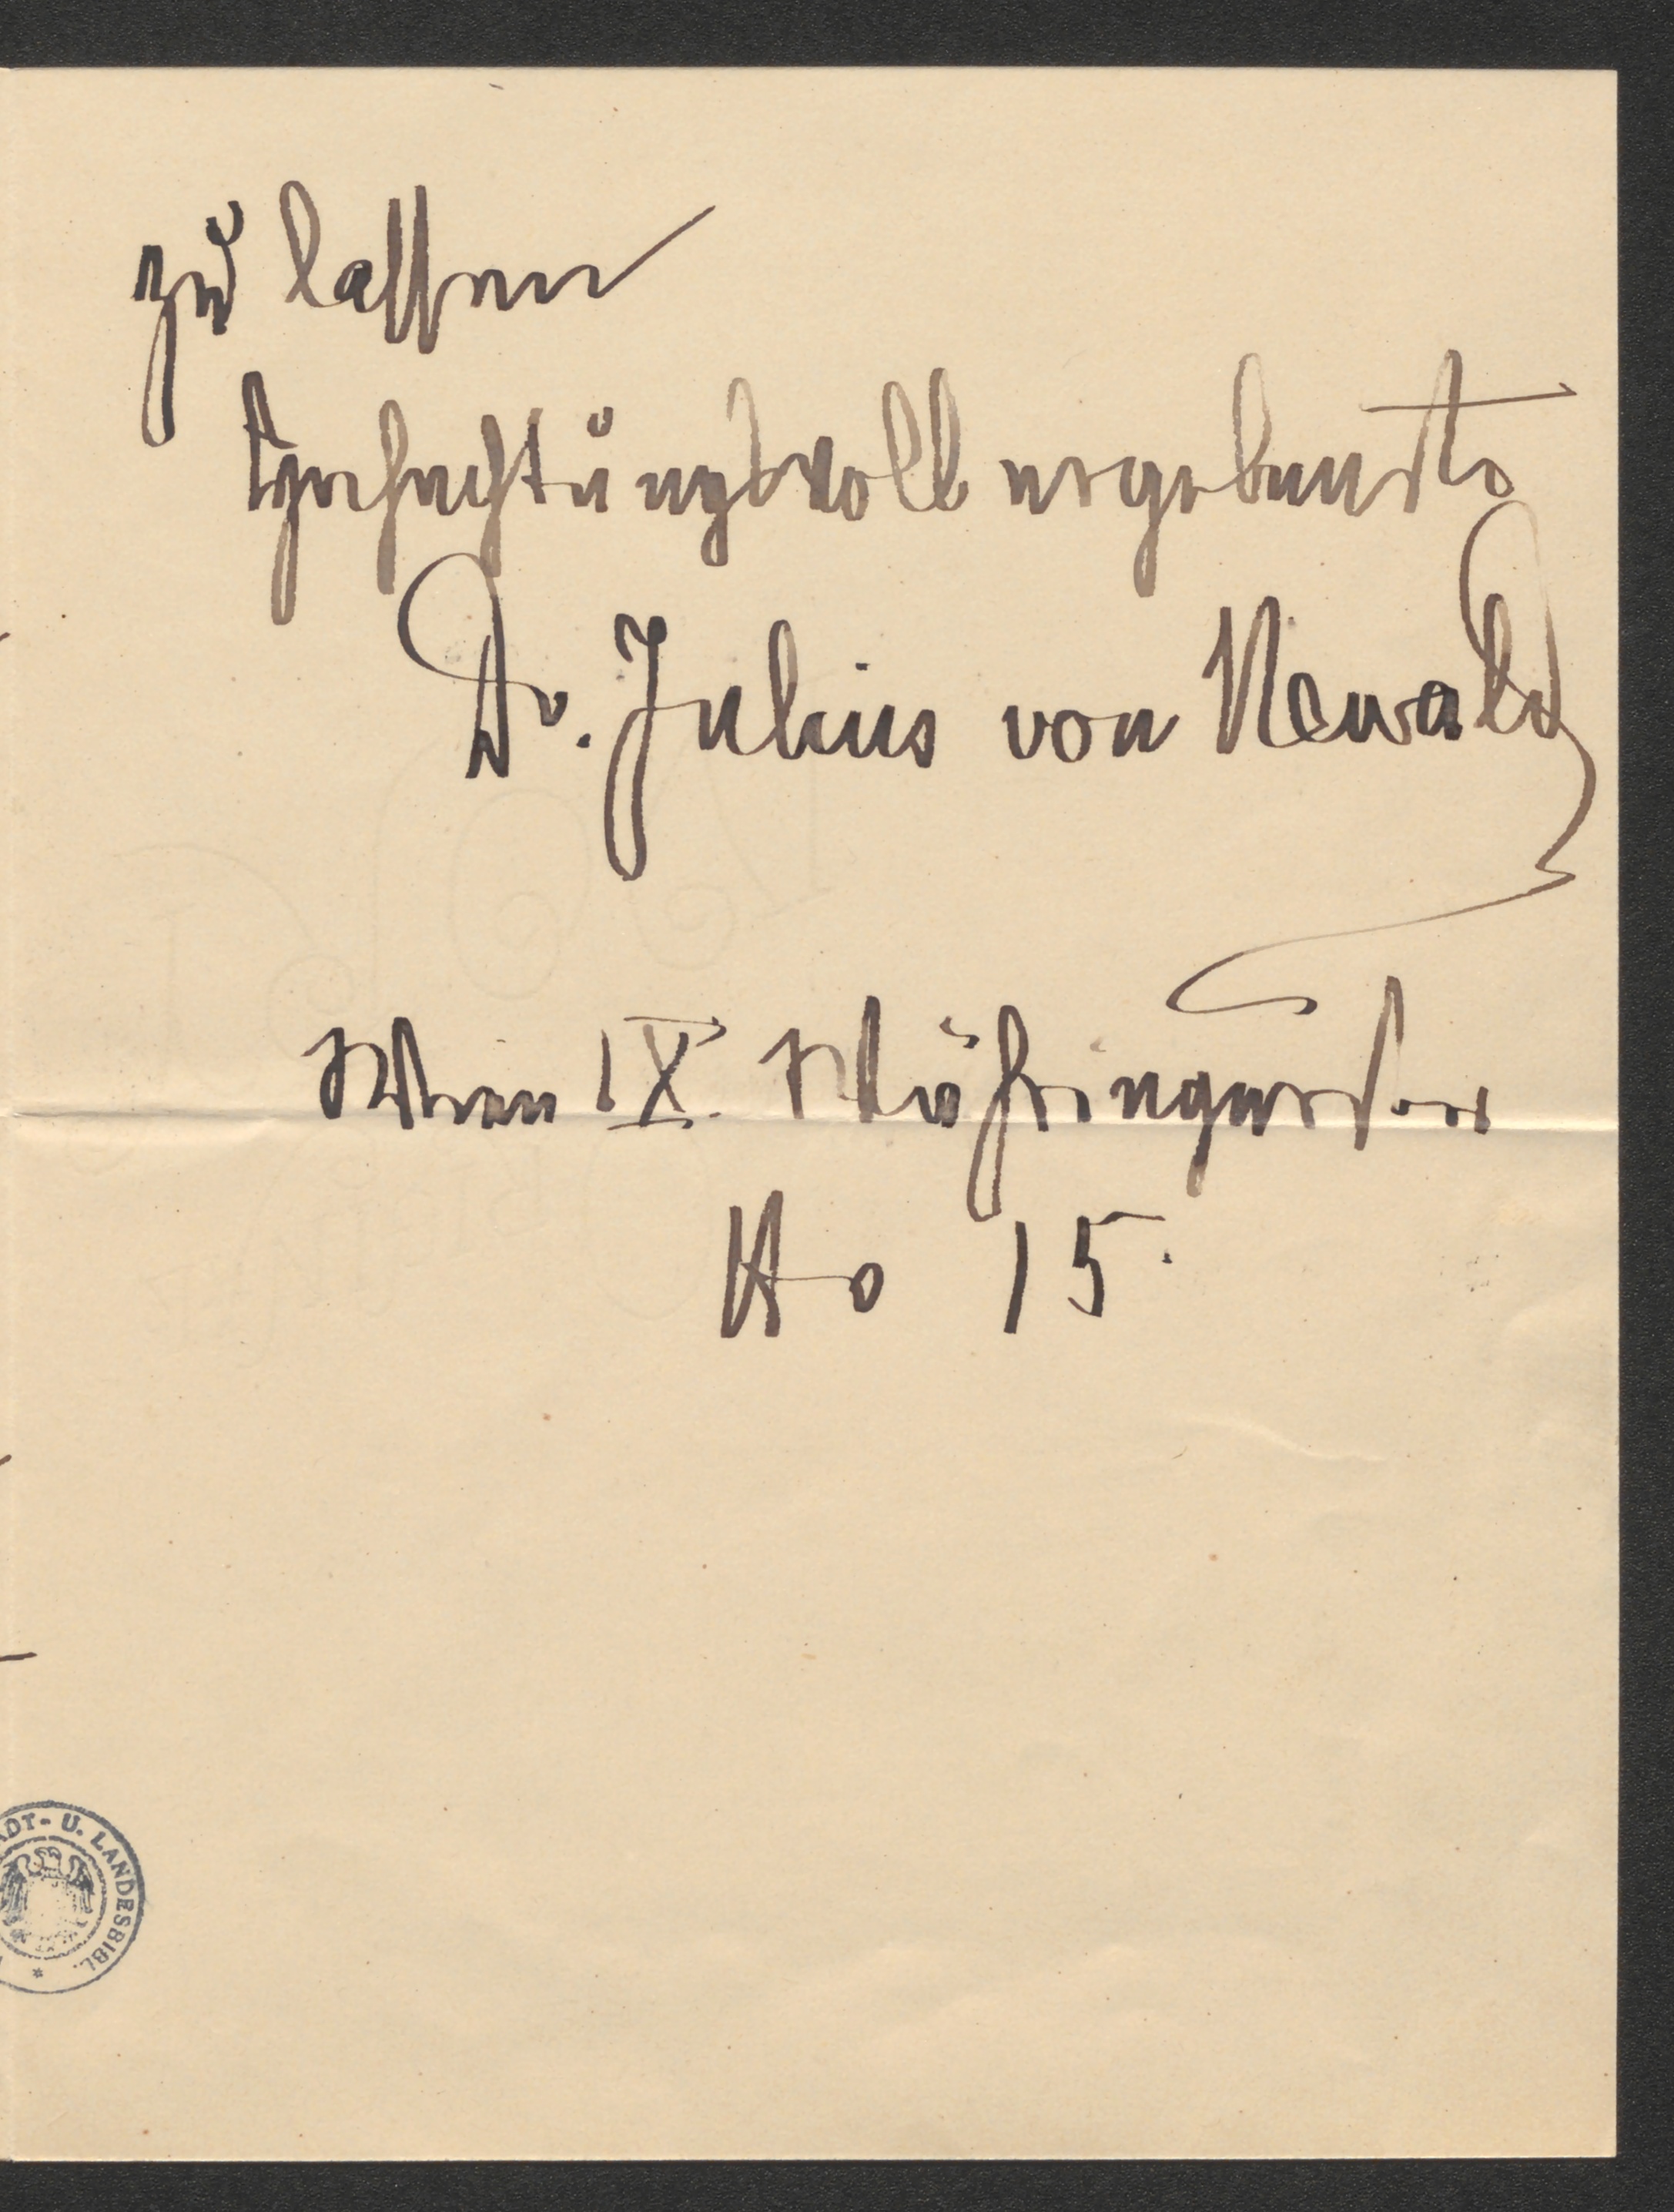 zu lassen
Hochachtungsvoll ergebenste
Dr. Julius von Newald
Wien IX. Währingerstr
No 15.
ADT- U. LANDESBIBL.